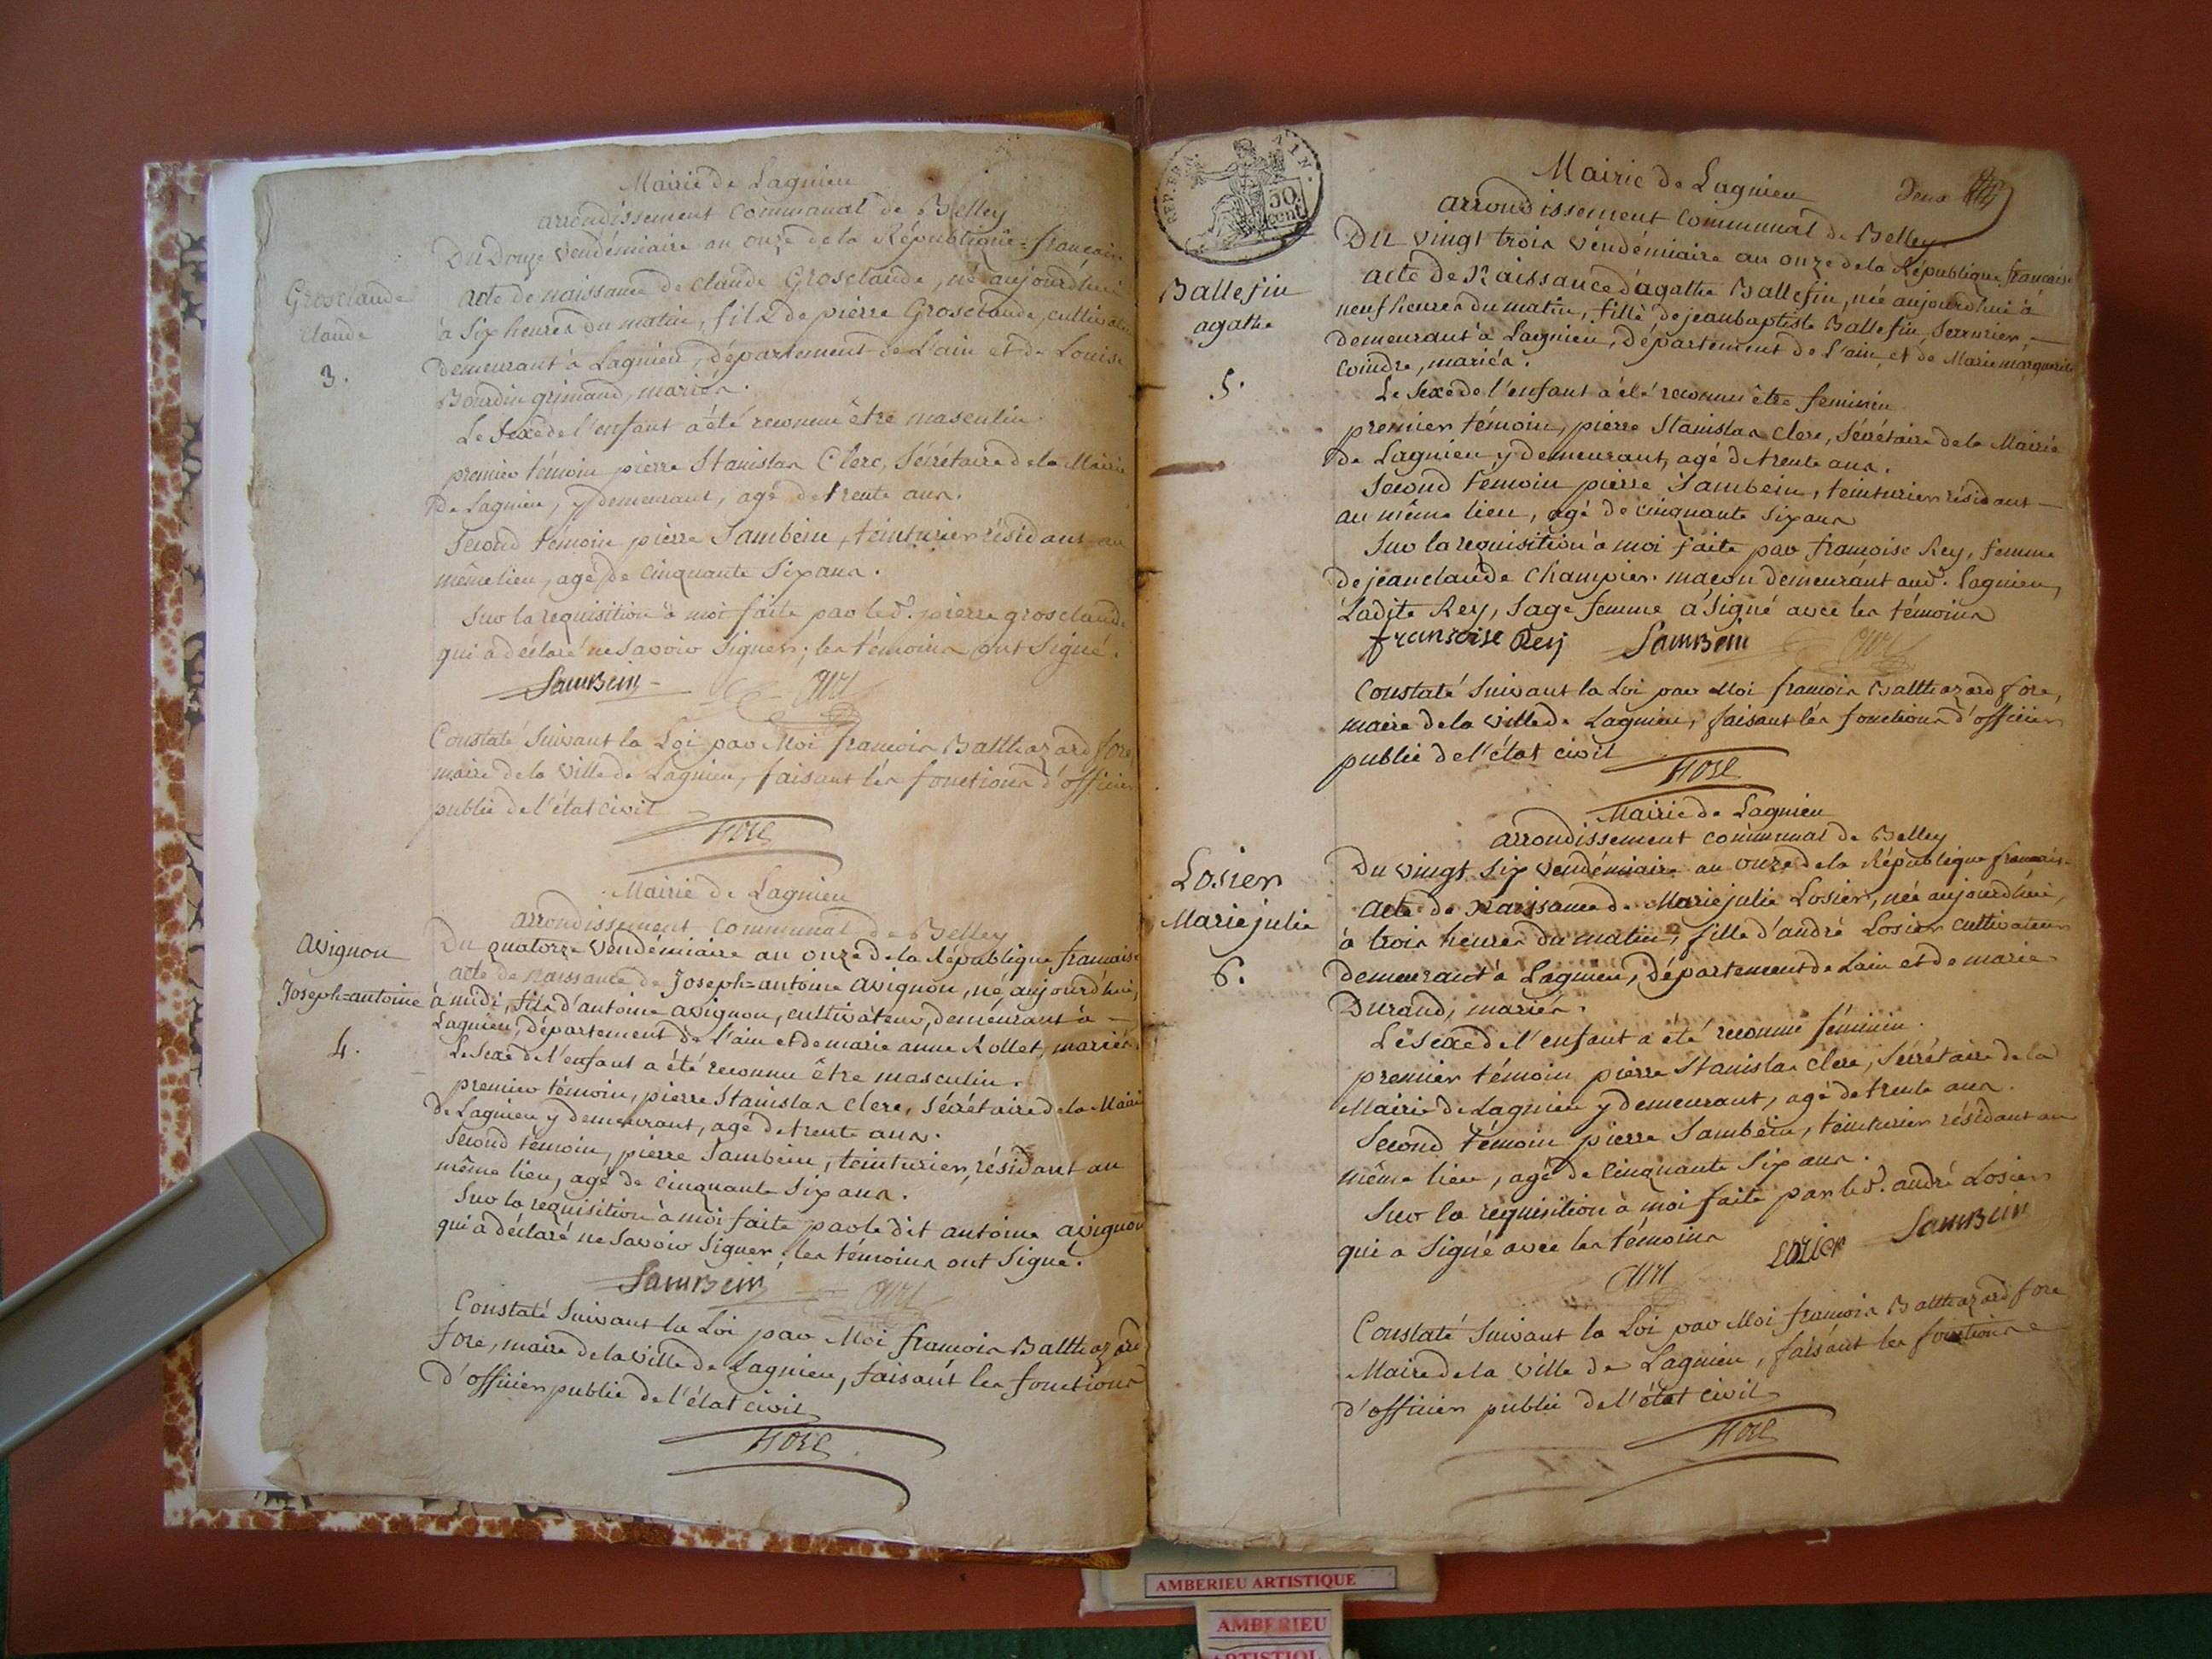 Mairie de Lagnieu
arrondissement Communal de Belley
Du Douze Vendémiaire an onze de la République = française
Grosclaude
Claude
3.
acte de naissance de Claude Grosclaude, né aujourd'hui
à Six heures du matin, fils de pierre Grosclaude, cultivateur
Demeurant à Lagnieu, département de L'ain et de Louise
Bourdin grimaud, mariés.
Le Sexe de l'enfant a été reconnu être masculin.
premier témoin pierre Stanislas Clerc, Sécrétaire de la Mairie
De Lagnieu, y demeurant, agé de trente ans.
Second témoin pierre Sambein, teinturier résidant au
même lieu, agé de Cinquante Six ans.
Sur la requisition à moi faite par led. pierre grosclaude
qui a déclaré ne Savoir Signer; les témoins ont Signé.
Sambein
Constaté Suivant la Loi par Moi françois Balthazard fore,
maire de la Ville de Lagnieu, faisant les fonctions d'officier
public de l'état civil
fore
Mairie de Lagnieu
arrondissement Communal de Belley
Du quatorze Vendémiaire an onze de la République française
avignon
Joseph=antoine
4.
acte de naissance de Joseph=antoine avignon, né aujourd'hui,
à midi, fils d'antoine avignon, cultivateur, demeurant à
Lagnieu, département de l'ain et de marie anne Rollet, mariés.
Le Sexe de l'enfant a été reconnu être masculin.
premier témoin, pierre Stanislas Clerc, Sécrétaire de la Mairie
de Lagnieu y demeurant, agé de trente ans.
Second témoin, pierre Sambein, teinturier, résidant au
même lieu, agé de Cinquante Six ans.
Sur la requisition à moi faite par le dit antoine avignon
qui a déclaré ne Savoir Signer; les témoins ont Signé.
Sambein
Constaté Suivant la Loi par Moi françois Balthazard
fore, maire de la Ville de Lagnieu, faisant les fonctions
d'officier public de l'état civil
fore
REP. FRA. AIN.
50 cent
Mairie de Lagnieu
Deux
arrondissement Communal de Belley
Du vingt trois vendémiaire an onze de la République française
Ballefin
agathe
5.
acte de Naissance d'agathe Ballefin, née aujourd'hui à
neuf heures du matin, fille de jean baptiste Ballefin, Serrurier,
Demeurant à Lagnieu, département de l'ain, et de Marie marguerite
Coindre, mariés.
Le Sexe de l'enfant a été reconnu être feminin
premier témoin, pierre Stanislas Clerc, Sécrétaire de la Mairie
de Lagnieu y demeurant, agé de trente ans.
Second témoin pierre Sambein, teinturier résidant
au même lieu, agé de cinquante Six ans
Sur la requisition à moi faite par françoise Rey, femme
de jean claude Champier. maçon demeurant aud. Lagnieu,
Ladite Rey, Sage femme a Signé avec les témoins
franzoise Rey Sambein
Constaté Suivant la Loi par Moi françois Balthazard fore,
maire de la Ville de Lagnieu, faisant les fonctions d'officier
public de l'état civil
fore
Mairie de Lagnieu
arrondissement communal de Belley
Du vingt Six Vendémiaire an onze de la République française
Losier
Marie julie
6.
acte de Naissance de Marie julie Losier, née aujourd'hui,
à trois heures du matin, fille d'andré Losier cultivateur
demeurant à Lagnieu, département de Lain et de marie
Durand, mariés.
Le Sexe de l'enfant a été reconnu féminin.
premier témoin pierre Stanislas Clerc, Sécrétaire de la
Mairie de Lagnieu y demeurant, agé de trente ans.
Second témoin pierre Sambein, teinturier résidant au
même lieu, agé de Cinquante Six ans.
Sur la requisition à moi faite par led. andré Losier
qui a Signé avec les témoins Lozier Sambein
Constaté Suivant la Loi par Moi françois Balthazard fore
Maire de la Ville de Lagnieu, faisant les fonctions
d'officier public de l'état civil
fore
AMBERIEU ARTISTIQUE
AMBERIEU
ARTISTIQ